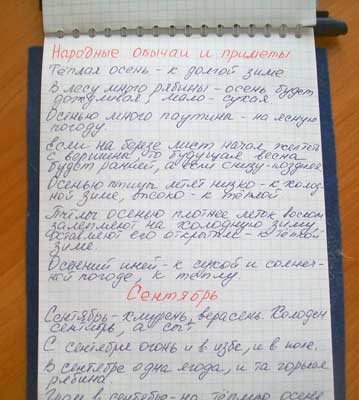 Народные обычаи и приметы
Тёплая осень - к долгой зиме
В лесу много рябины - осень будет
дождливая, мало - сухая
Осенью много паутины - на ясную
погоду.
Если на березе лист начал желтеть
с вершины, то будущая весна
будет ранней, а если снизу - поздняя
Осенью птицы летят низко - к холод-
ной зиме, высоко - к тёплой
Пчёлы осенью плотнее леток воском
залепляют на холодную зиму,
оставляют его открытым - к тёплой
зиме.
Осенний иней - к сухой и солнеч-
ной погоде, к теплу
Сентябрь
Сентябрь - хмурень, верасень. Холоден
сентябрь, а сыт
С сентября огонь и в избе, и в поле.
В сентябре одна ягода, и та горькая
рябина.
Гром в сентябре - на тёплую осень